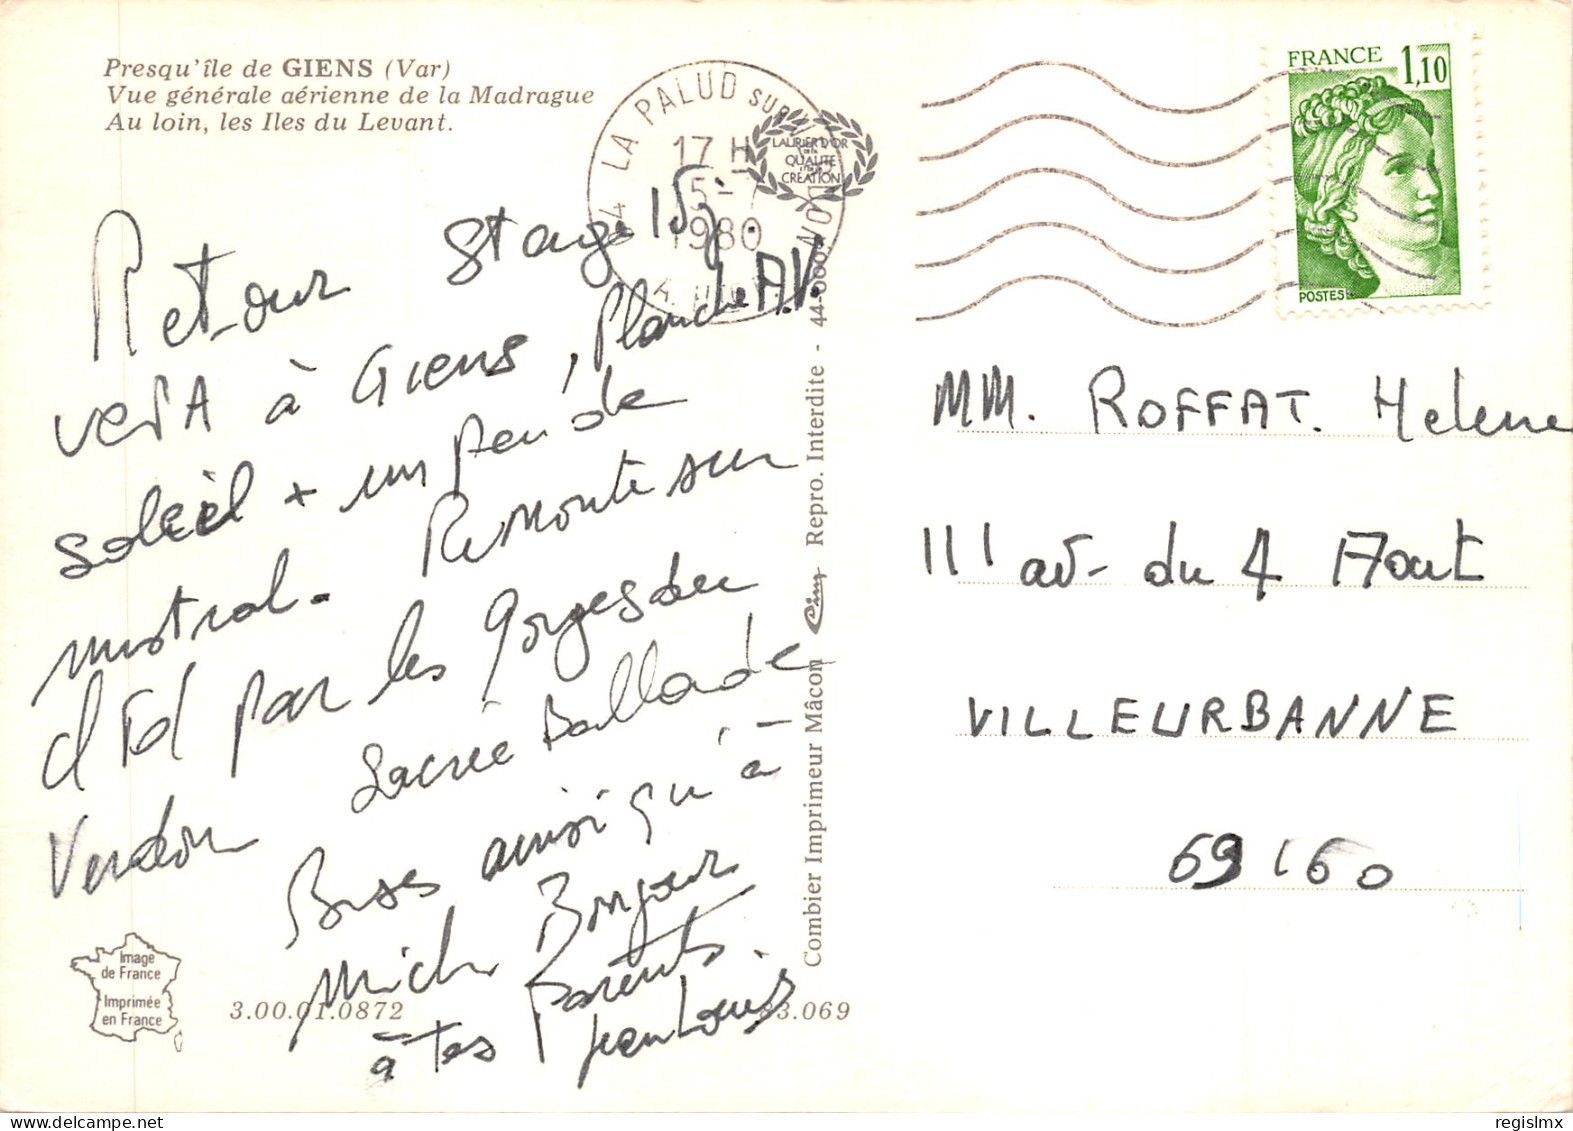 Presqu'île de GIENS (Var)
Vue générale aérienne de la Madrague
Au loin, les Iles du Levant.
LA PALUD SUR VERDON
17 H
5-7
1980
LAURIER D'OR
DE LA
QUALITÉ
CRÉATION
FRANCE 1,10
POSTES
Retour Stage 15j.
VERTA à Giens, Planche A.V.
Soleil + un peu de
mistral. Remonte sur
d'Id par les gorges du
Verdon Sacrée Ballade
Bises ainsi qu'à
Miche Bonjour
à tes Parents
Jean Louis
MM. ROFFAT. Helene
111 av- du 4 Aout
VILLEURBANNE
69160
Combier Imprimeur Mâcon Cim Repro. Interdite - 44-000
Image
de France
Imprimée
en France
3.00.01.0872
83.069
regislmx